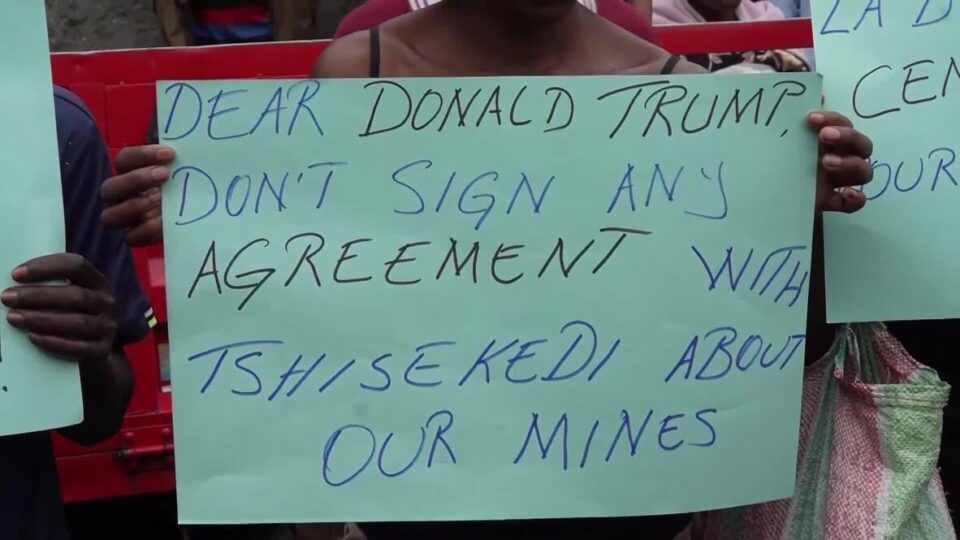 DEAR DONALD TRUMP,
DON'T SIGN ANY
AGREEMENT WITH
TSHISEKEDI ABOUT
OUR MINES
LA
OUR